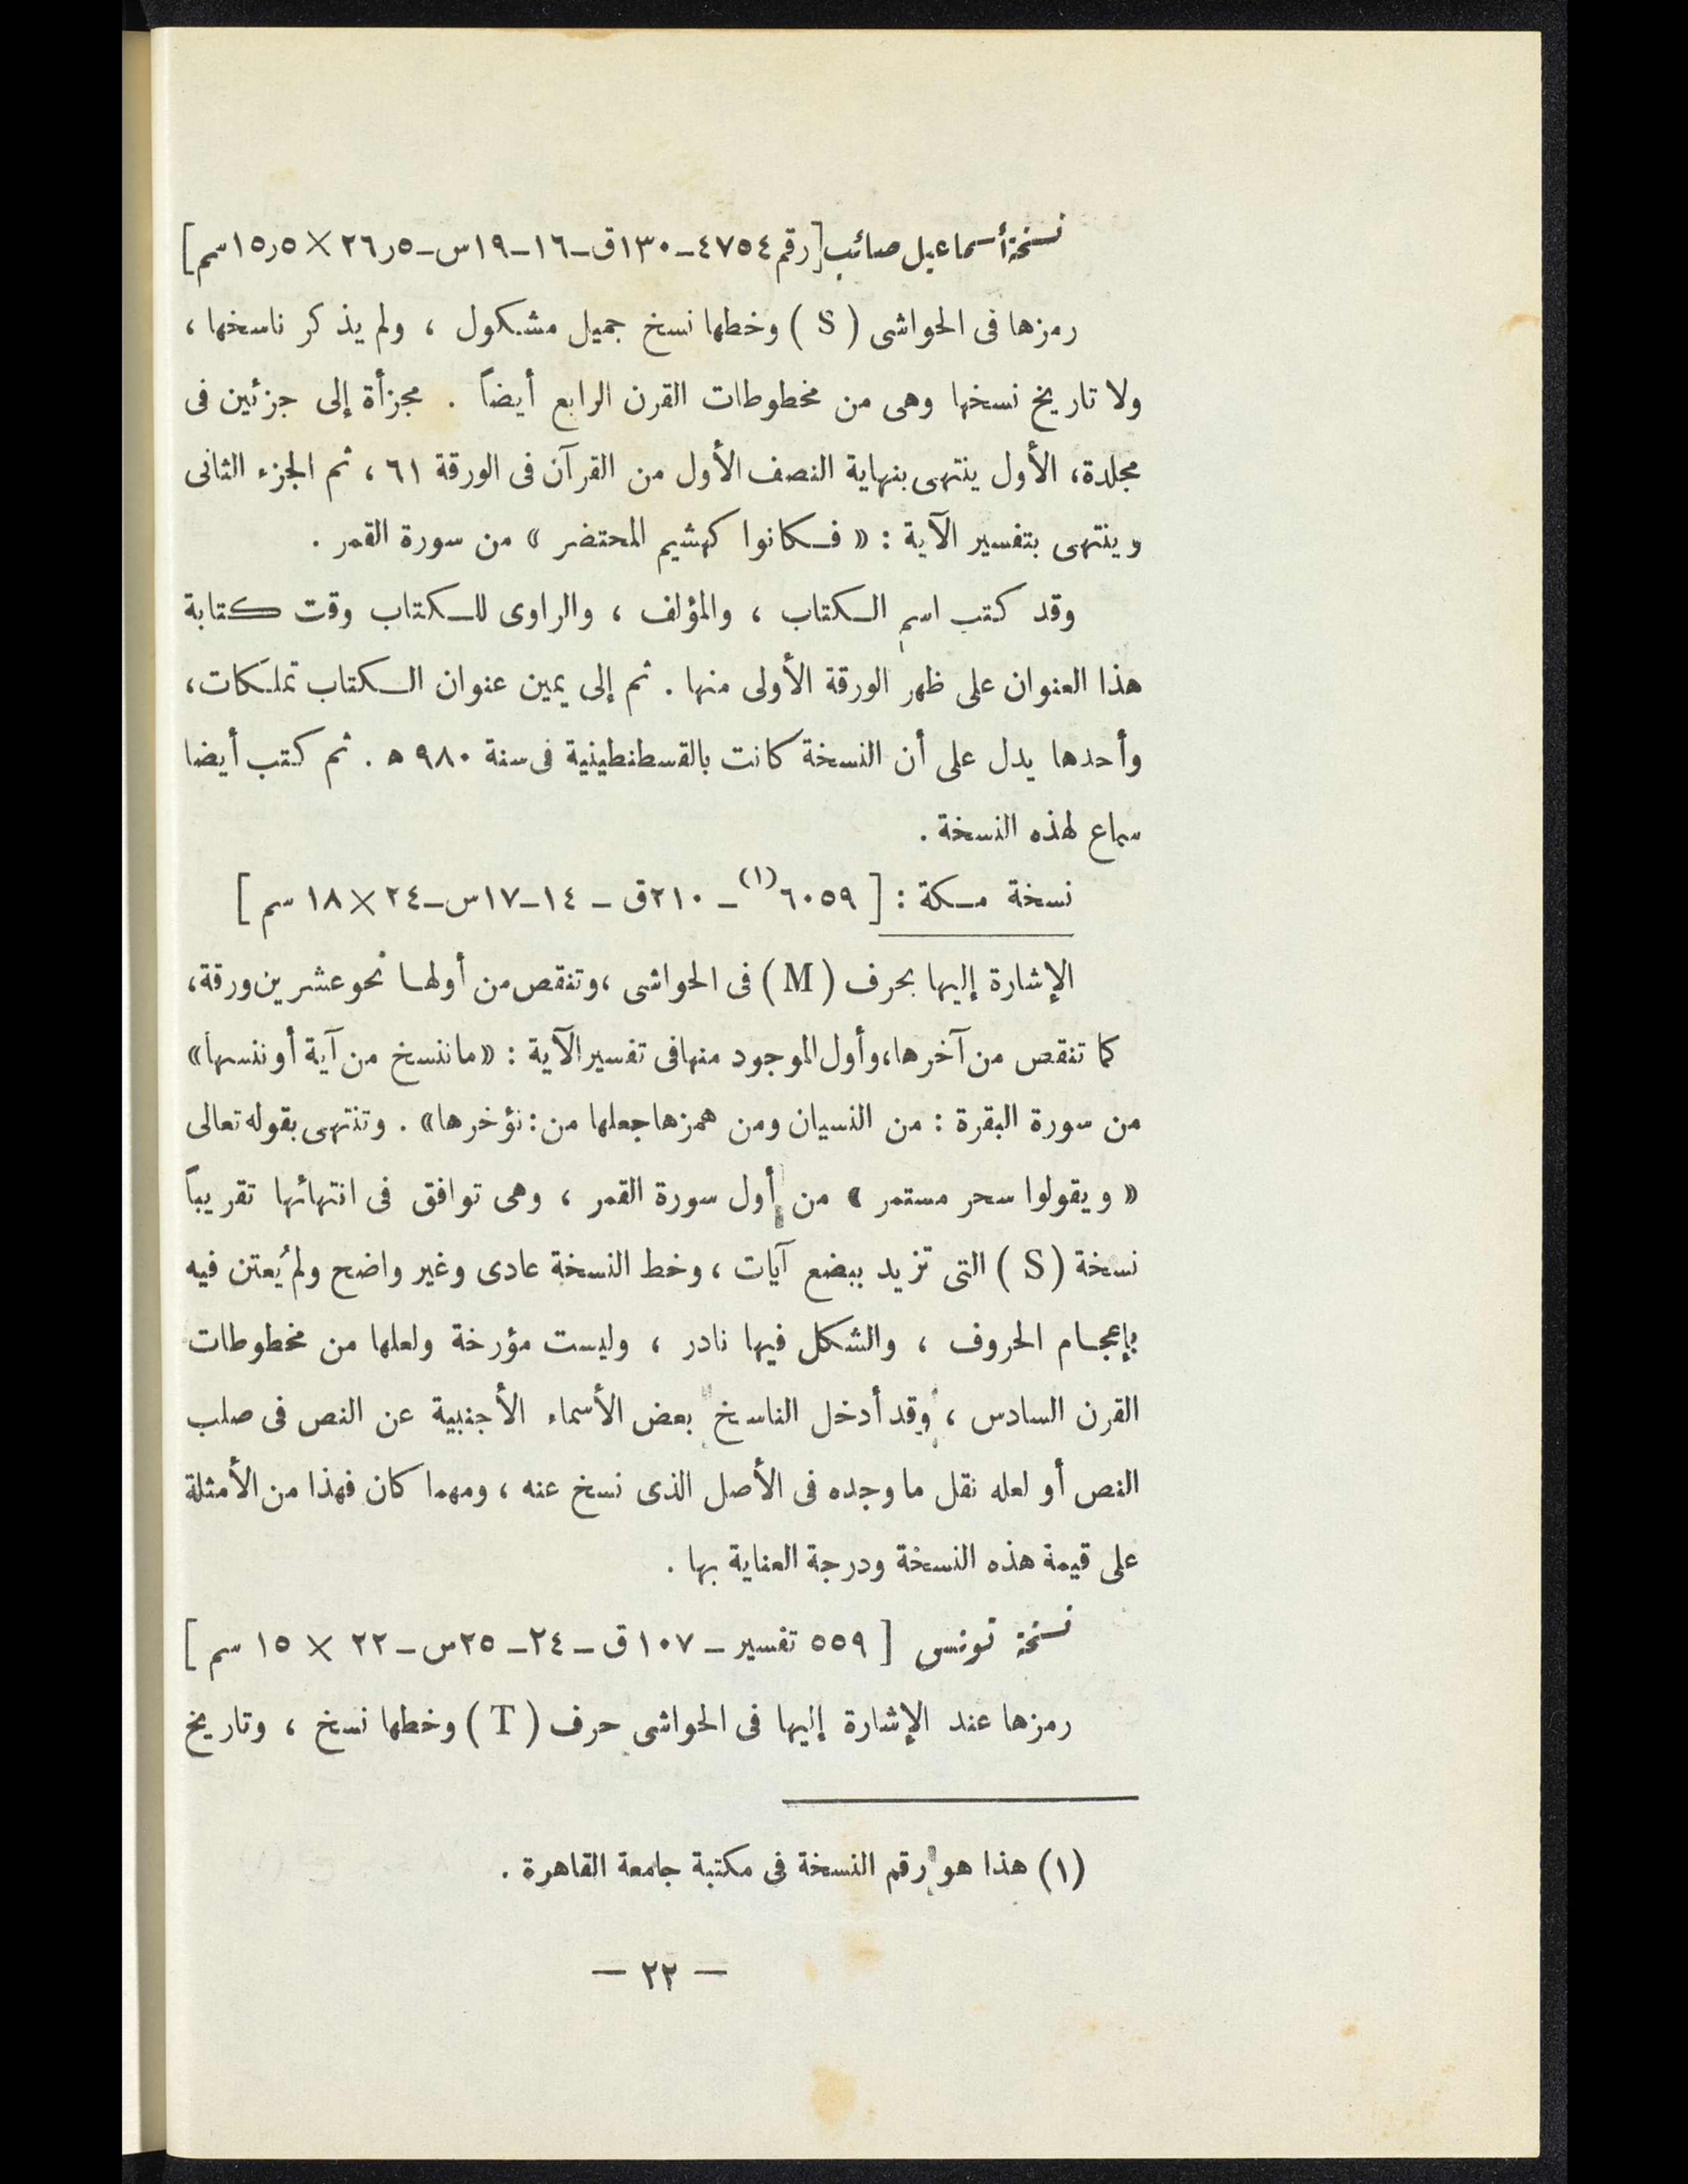 نسخة أسماعيل صائب [ رقم ٤٧٥٤ــ١٣٠ق ــ١٦ــ١٩س ــ٥ر٢٦ × ٥ر١٥سم ]
رمزها فى الحواشى ( S ) وخطها نسخ جميل مشكول ، ولم يذكر ناسخها ،
ولا تاريخ نسخها وهى من مخطوطات القرن الرابع أيضاً . مجزأة إلى جزئين فى
مجلدة، الأول ينتهى بنهاية النصف الأول من القرآن فى الورقة ٦١ ، ثم الجزء الثانى
وينتهى بتفسير الآية : « فكانوا كهشيم المحتضر » من سورة القمر .
وقد كتب اسم الكتاب ، والمؤلف ، والراوى للكتاب وقت كتابة
هذا العنوان على ظهر الورقة الأولى منها . ثم إلى يمين عنوان الكتاب تملكات ،
وأحدها يدل على أن النسخة كانت بالقسطنطينية فى سنة ٩٨٠ ه . ثم كتب أيضا
سماع لهذه النسخة .
نسخة مكة : [ ٦٠٥٩(١) ــ ٢١٠ق ــ ١٤ــ١٧س ــ٢٤ × ١٨ سم ]
الإشارة إليها بحرف ( M ) فى الحواشى ، وتنقص من أولها نحو عشرين ورقة ،
كما تنقص من آخرها، وأول الموجود منها فى تفسير الآية : « ما ننسخ من آية أو ننسها »
من سورة البقرة : من النسيان ومن همزها جعلها من : نؤخرها » . وتنتهى بقوله تعالى
« ويقولوا سحر مستمر » من أول سورة القمر ، وهى توافق فى انتهائها تقريباً
نسخة ( S ) التى تزيد ببضع آيات ، وخط النسخة عادى وغير واضح ولم يُعتن فيه
بإعجام الحروف ، والشكل فيها نادر ، وليست مؤرخة ولعلها من مخطوطات
القرن السادس ، وقد أدخل الناسخ بعض الأسماء الأجنبية عن النص فى صلب
النص أو لعله نقل ما وجده فى الأصل الذى نسخ عنه ، ومهما كان فهذا من الأمثلة
على قيمة هذه النسخة ودرجة العناية بها .
نسخة تونس [ ٥٥٩ تفسير ــ ١٠٧ ق ــ ٢٤ــ ٢٥س ــ ٢٢ × ١٥ سم ]
رمزها عند الإشارة إليها فى الحواشى حرف ( T ) وخطها نسخ ، وتاريخ
(١) هذا هو رقم النسخة فى مكتبة جامعة القاهرة .
— ٢٢ —